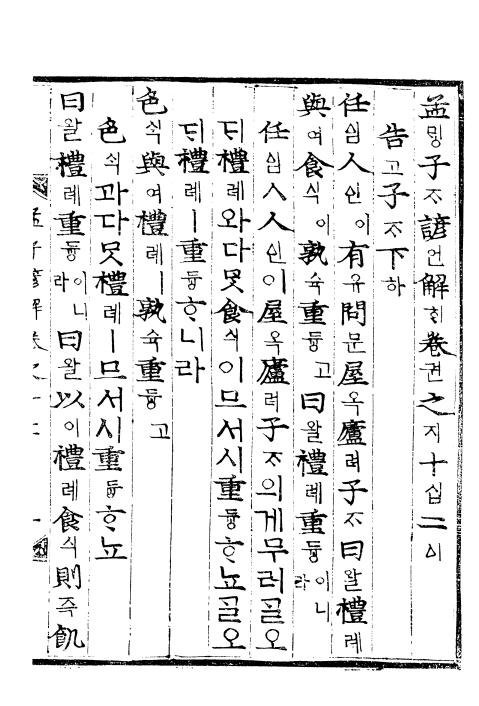 孟밍子ᄌᆞ諺언解ᄒᆡ卷권之지十십二이
告고子ᄌᆞ下하
任심人인이有유問문屋옥廬려子ᄌᆞ曰왈禮례
與여食식이孰슉重듕고曰왈禮례重듕이니라
任심人인이屋옥廬려子ᄌᆞ의게무러ᄀᆞᆯ오
ᄃᆡ禮례와다ᄆᆞᆺ食식이므서시重듕ᄒᆞ뇨ᄀᆞᆯ오
ᄃᆡ禮례ㅣ重듕ᄒᆞ니라
色ᄉᆡᆨ與여禮례ㅣ孰슉重듕고
色ᄉᆡᆨ과다ᄆᆞᆺ禮례ㅣ므서시重듕ᄒᆞ뇨
曰왈禮례重듕이니라曰왈以이禮례食식則즉飢
孟子諺解卷之十二 一